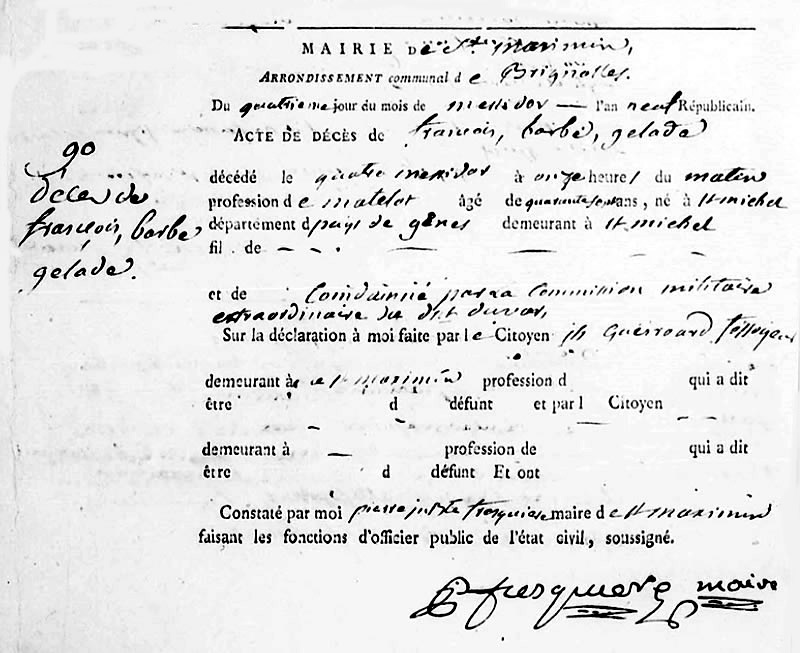 MAIRIE De St. Maximin,
ARRONDISSEMENT communal de Brignolles.
Du quatrieme jour du mois de messidor — l'an neuf Républicain.
ACTE DE DÉCÈS de françois, barbe, gelade
90
Décès de
françois, barbe
gelade.
décédé le quatre messidor à onze heures du matin
profession de matelot âgé de quarante sept ans, né à st michel
département d pays de gênes demeurant à st michel
fil. de — — . — — —
et de Condamné par la Commission militaire
extraordinaire du dit du var,
Sur la déclaration à moi faite par le Citoyen jh Guerouard
demeurant à st maximin profession d qui a dit
être d défunt et par l Citoyen
demeurant à — profession de qui a dit
être d défunt Et ont
Constaté par moi pierre juste fresquiere maire de st maximin
faisant les fonctions d'officier public de l'état civil, soussigné.
fresquiere maire